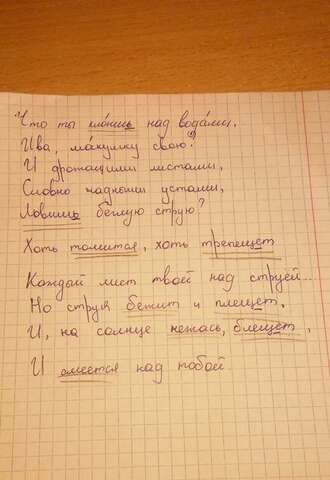 Что ты клóнишь над водáми,
Ива, мáкушку свою?
И дрожащими листами,
Словно жадными устами,
Ловишь беглую струю?
Хоть томится, хоть трепещет
Каждый лист твой над струей...
Но струя бежит и плещет,
И, на солнце нежась, блещет,
И смеется над тобой